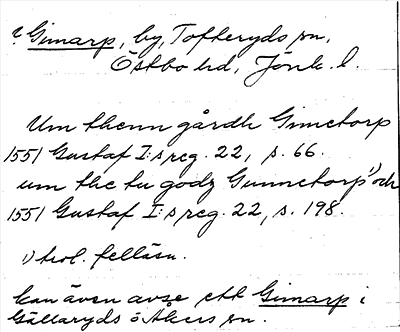 ? Gimarp, by, Tofteryds sn,
Östbo hd, Jönk. l.
Um thenn gårdh Ginnetorp
1551 Gustaf I:s reg. 22, s. 66.
um the tu godz Gunnetorp 1) och
1551 Gustaf I:s reg. 22, s. 198.
1) trol. felläsn.
kan även avse ett Gimarp i
Gällaryds o Åkers sn.